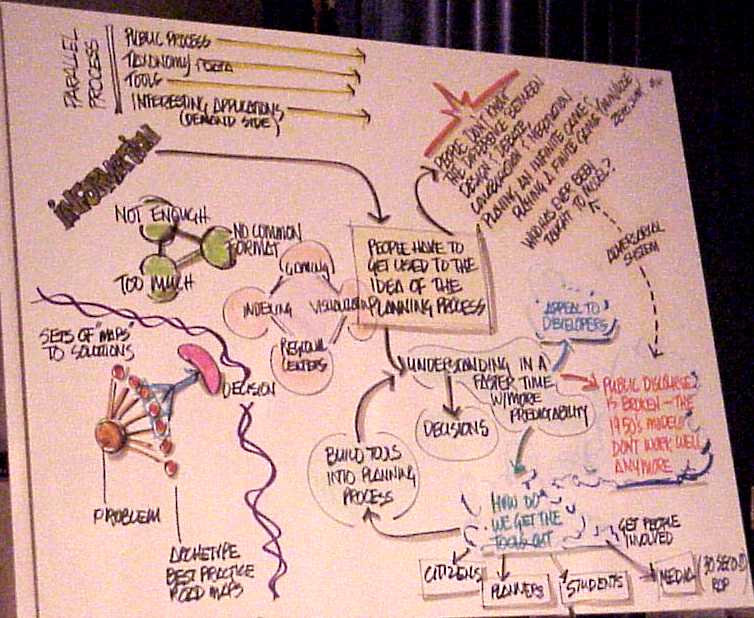 PARALLEL
PROCESS
PUBLIC PROCESS
TAXONOMY
TOOLS
INTERESTING APPLICATIONS
(DEMAND SIDE)
INFORMATION
NOT ENOUGH
NO COMMON
FORMAT
TOO MUCH
GAMING
INDEXING
VISUALIZATION
REGIONAL
CENTERS
PEOPLE HAVE TO
GET USED TO THE
IDEA OF THE
PLANNING PROCESS
PEOPLE DON'T KNOW
THE DIFFERENCE BETWEEN
DESIGN & DEBATE
COLLABORATION & NEGOTIATION
PLAYING AN INFINITE GAME &
PLAYING A FINITE GAME
WHO HAS EVER BEEN
TAUGHT TO MODEL?
ADVERSARIAL
SYSTEM
SETS OF "MAPS"
TO SOLUTIONS
DECISION
PROBLEM
ARCHETYPE
BEST PRACTICE
ROAD MAPS
"APPEAL TO
DEVELOPERS"
UNDERSTANDING IN A
FASTER TIME
W/MORE
PREDICTABILITY
DECISIONS
PUBLIC DISCOURSE
IS BROKEN - THE
1950'S MODELS
DON'T WORK WELL
ANYMORE
BUILD TOOLS
INTO PLANNING
PROCESS
HOW DO
WE GET THE
TOOLS OUT
GET PEOPLE
INVOLVED
CITIZENS
PLANNERS
STUDENTS
MEDIA
30 SECOND
POP